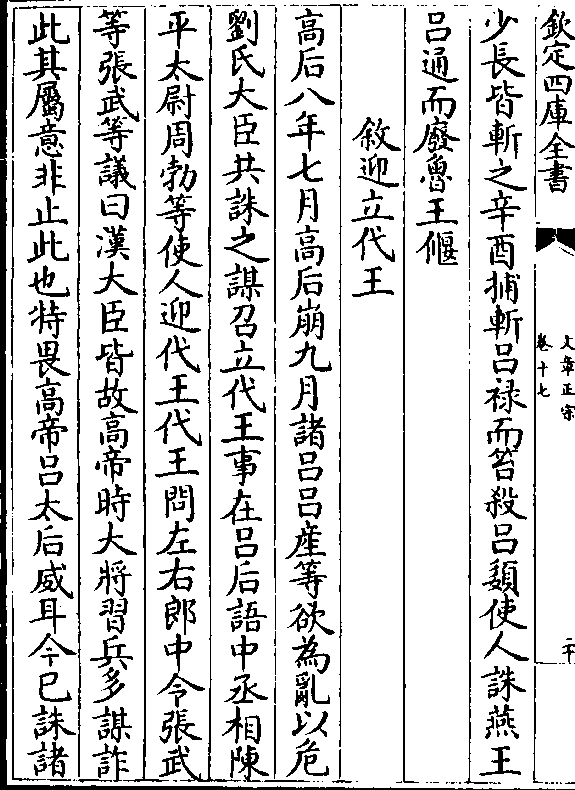 欽定四庫全書
文章正宗
卷十七
二十
少長皆斬之辛酉捕斬吕禄而笞殺吕嬃使人誅燕王
吕通而廢魯王偃
敘迎立代王
高后八年七月高后崩九月諸吕吕産等欲為亂以危
劉氏大臣共誅之謀召立代王事在吕后語中丞相陳
平太尉周勃等使人迎代王代王問左右郎中令張武
等張武等議曰漢大臣皆故高帝時大將習兵多謀詐
此其屬意非止此也特畏高帝吕太后威耳今已誅諸